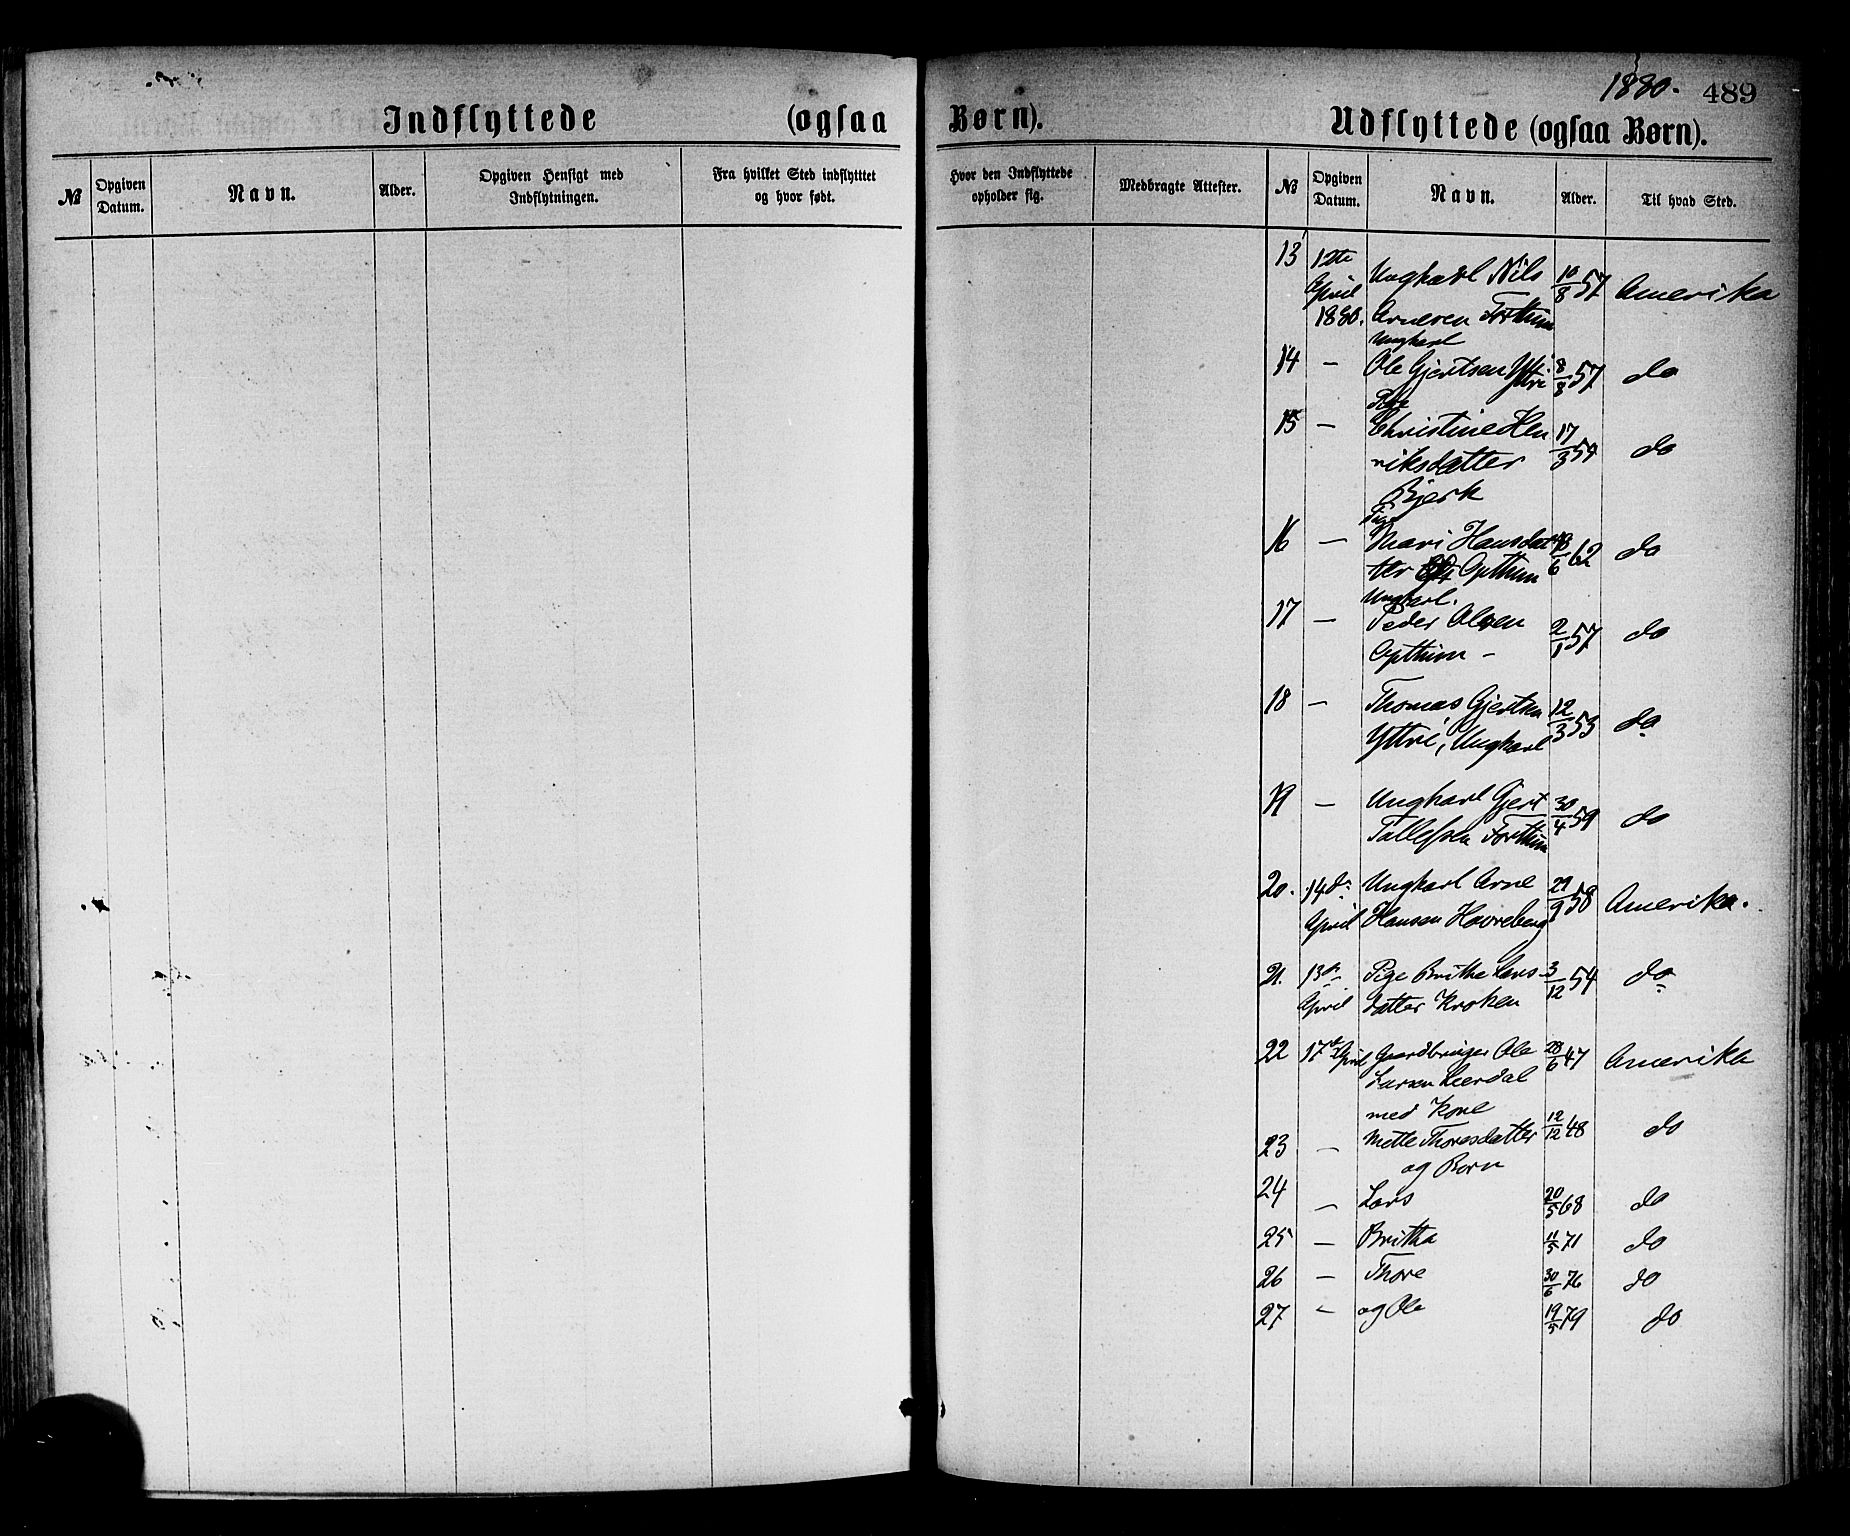 1880. 489
Indflyttede (ogsaa Børn).
Udflyttede (ogsaa Børn).
№ Opgiven Datum. Navn. Alder. Opgiven Hensigt med Indflytningen. Fra hvilket Sted indflytttet og hvor født. Hvor den Indflyttede opholder sig. Medbragte Attester. № Opgiven Datum. Navn. Alder. Til hvad Sted.
13 12te Ungkarl Nils 10/8 57 Amerika
April
1880. Arnesen Fortthun
Ungkarl
14 — Ole Gjertsen Yttri 8/3 57 do
Pige
15 — Christine Hen 17/3 54 do
riksdatter
Bjerk
Pige
16 — Mari Hansdat 6 62 do
ter Opthun
Ungkarl.
17 — Peder Olsen 2/1 57 do
Opthun —
18 — Thomas Gjertsen 12/3 53 do
Yttri, Ungkarl
19 — Ungkarl Gjert 30/4 59 do
Tollefsen Fortthun
20. 14de Ungkarl Arne 29/9 58 Amerika.
April Hansen Havreberg
21. 13de Pige Brithe Lars- 3/12 54 do
April datter Kroken
22 17de April Gaardbruger Ole 28/6 47 Amerika
Larsen Leerdal
med Kone
23 — Mette Thoresdatter 12/12 48 do
og Børn
24 — Lars 20/5 68 do
25 — Britha 11/5 71 do
26 — Thore 30/6 76 do
27 — og Ole 19/5 79 do